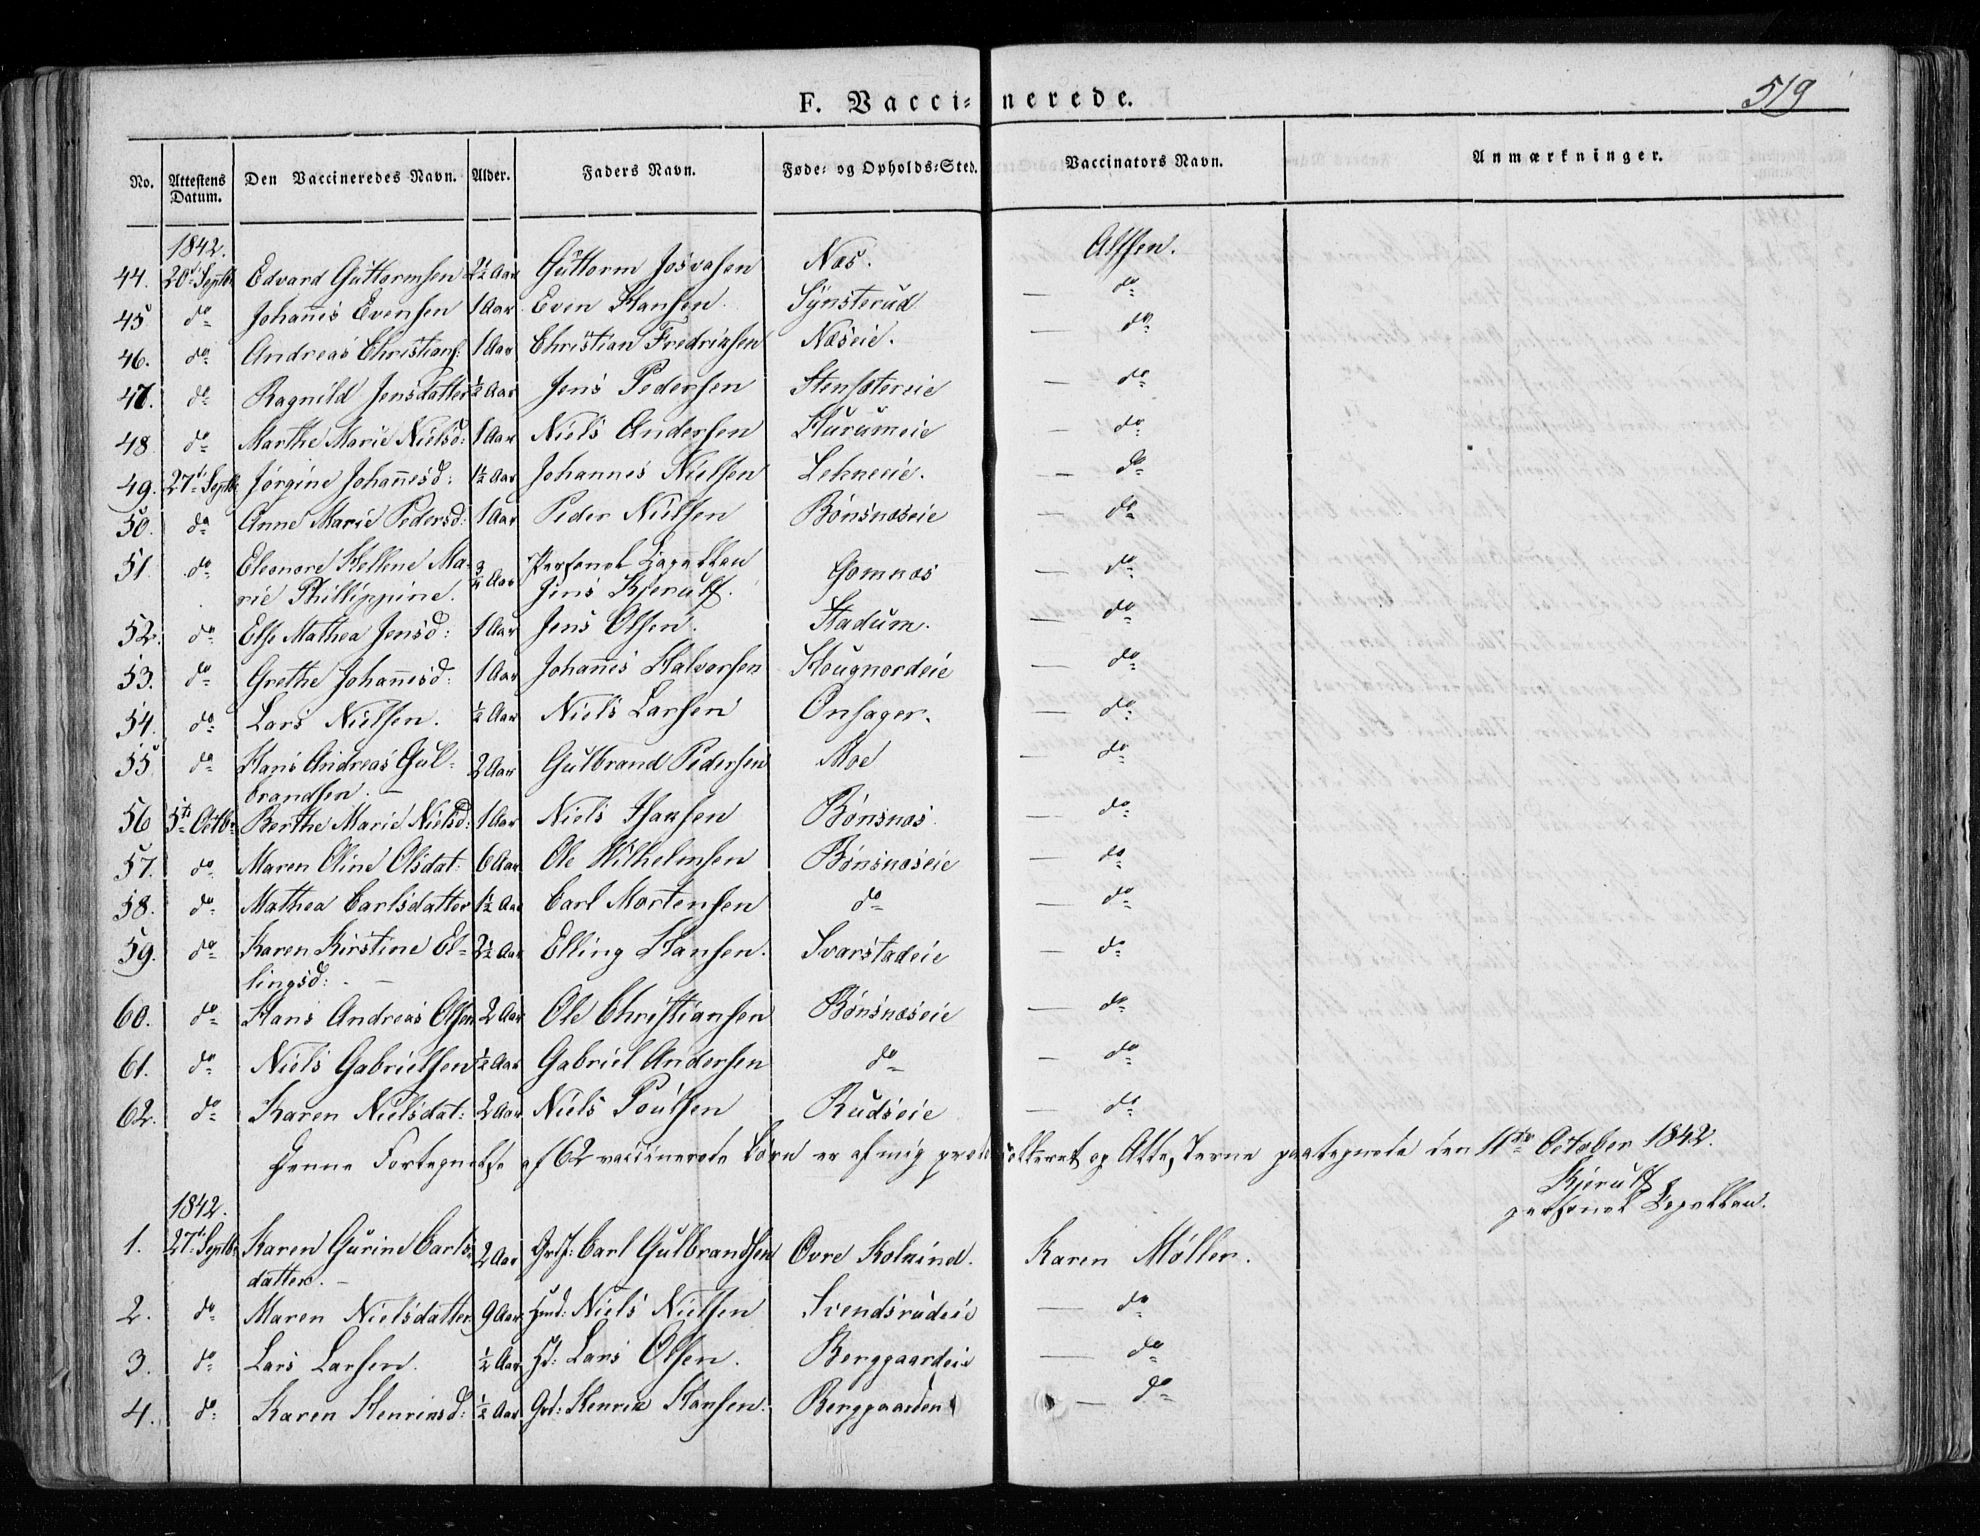 519
F. Vaccinerede.
No. Attestens Datum. Den Vaccineredes Navn. Alder. Faders Navn. Føde- og Opholds-Sted. Vaccinators Navn. Anmærkninger.
1842.
44. 20d Septbr Edvard Guttormsen 2½ Aar Guttorm Josvasen Næs.
45 do Johannes Evensen 1 Aar Even Hansen Synsterud — do
46. do Andreas Christians: 1 Aar Christian Fredriksen Næseie. — do
47. do Ragnild Jensdatter ½ Aar Jens Pedersen Stensætereie — do
48 do Marthe Marie Nielsd: 1 Aar Niels Andersen Hurumeie — do
49. 27d Septbr Jørgine Johannesd: 1½ Aar Johannes Nielsen Lekneeie. — do
50. do Anne Marie Pedersd: 1 Aar Peder Nielsen Bønsnæseie — do
51. do Eleonore Hellene Ma-
rie Phillippine. ¾ Aar Personel Capellan
Jens Kjerulf. Gomnæs — do
52. do Else Mathea Jensd: 1 Aar Jens Olsen. Stadum. — do
53. do Grethe Johannesd: 1 Aar Johannes Halvorsen Hougnordeie — do
54. do Lars Nielsen. ½ Aar Niels Larsen Onsager. — do
55 do Hans Andreas Gul-
brandsen. — 2 Aar Gulbrand Pedersen Moe — do
56 5te Octbr Berthe Marie Nielsd: 1 Aar Niels Hansen Bønsnæs. — do
57. do Maren Oline Olsdat: 6 Aar Ole Wilhelmsen Bønsnæseie — do
58. do Mathea Carlsdatter 1½ Aar Carl Mortensen do — do
59. do Karen Kirstine El-
lingsd: — 2½ Aar Elling Hansen. Svarstadeie — do
60. do Hans Andreas Olsen 2 Aar Ole Christiansen Bønsnæseie — do
61. do Niels Gabrielsen ½ Aar Gabriel Andersen do — do
62. do Karen Nielsdat: 2 Aar Niels Poulsen Rudseie — do
Denne Fortegnelse af 62 vaccinerede Børn er af mig protocolleret og Attesterne paategnede den 11te October 1842.
Kjerulf
personel Capellan.
1842.
1. 27d Septbr Karen Gurine Carls-
datter. — 2 Aar Carl Gulbrandsen Øvre Kolkind. Karen Møller.
2. do Maren Nielsdatter 9 Aar Hmd: Niels Nielsen Svendsrudeie — do
3. do Lars Larsen. ½ Aar Hd: Lars Olsen. Berggaardeie — do
4. do Karen Henriksd: ½ Aar Henrik Hansen. Berggaarden — do